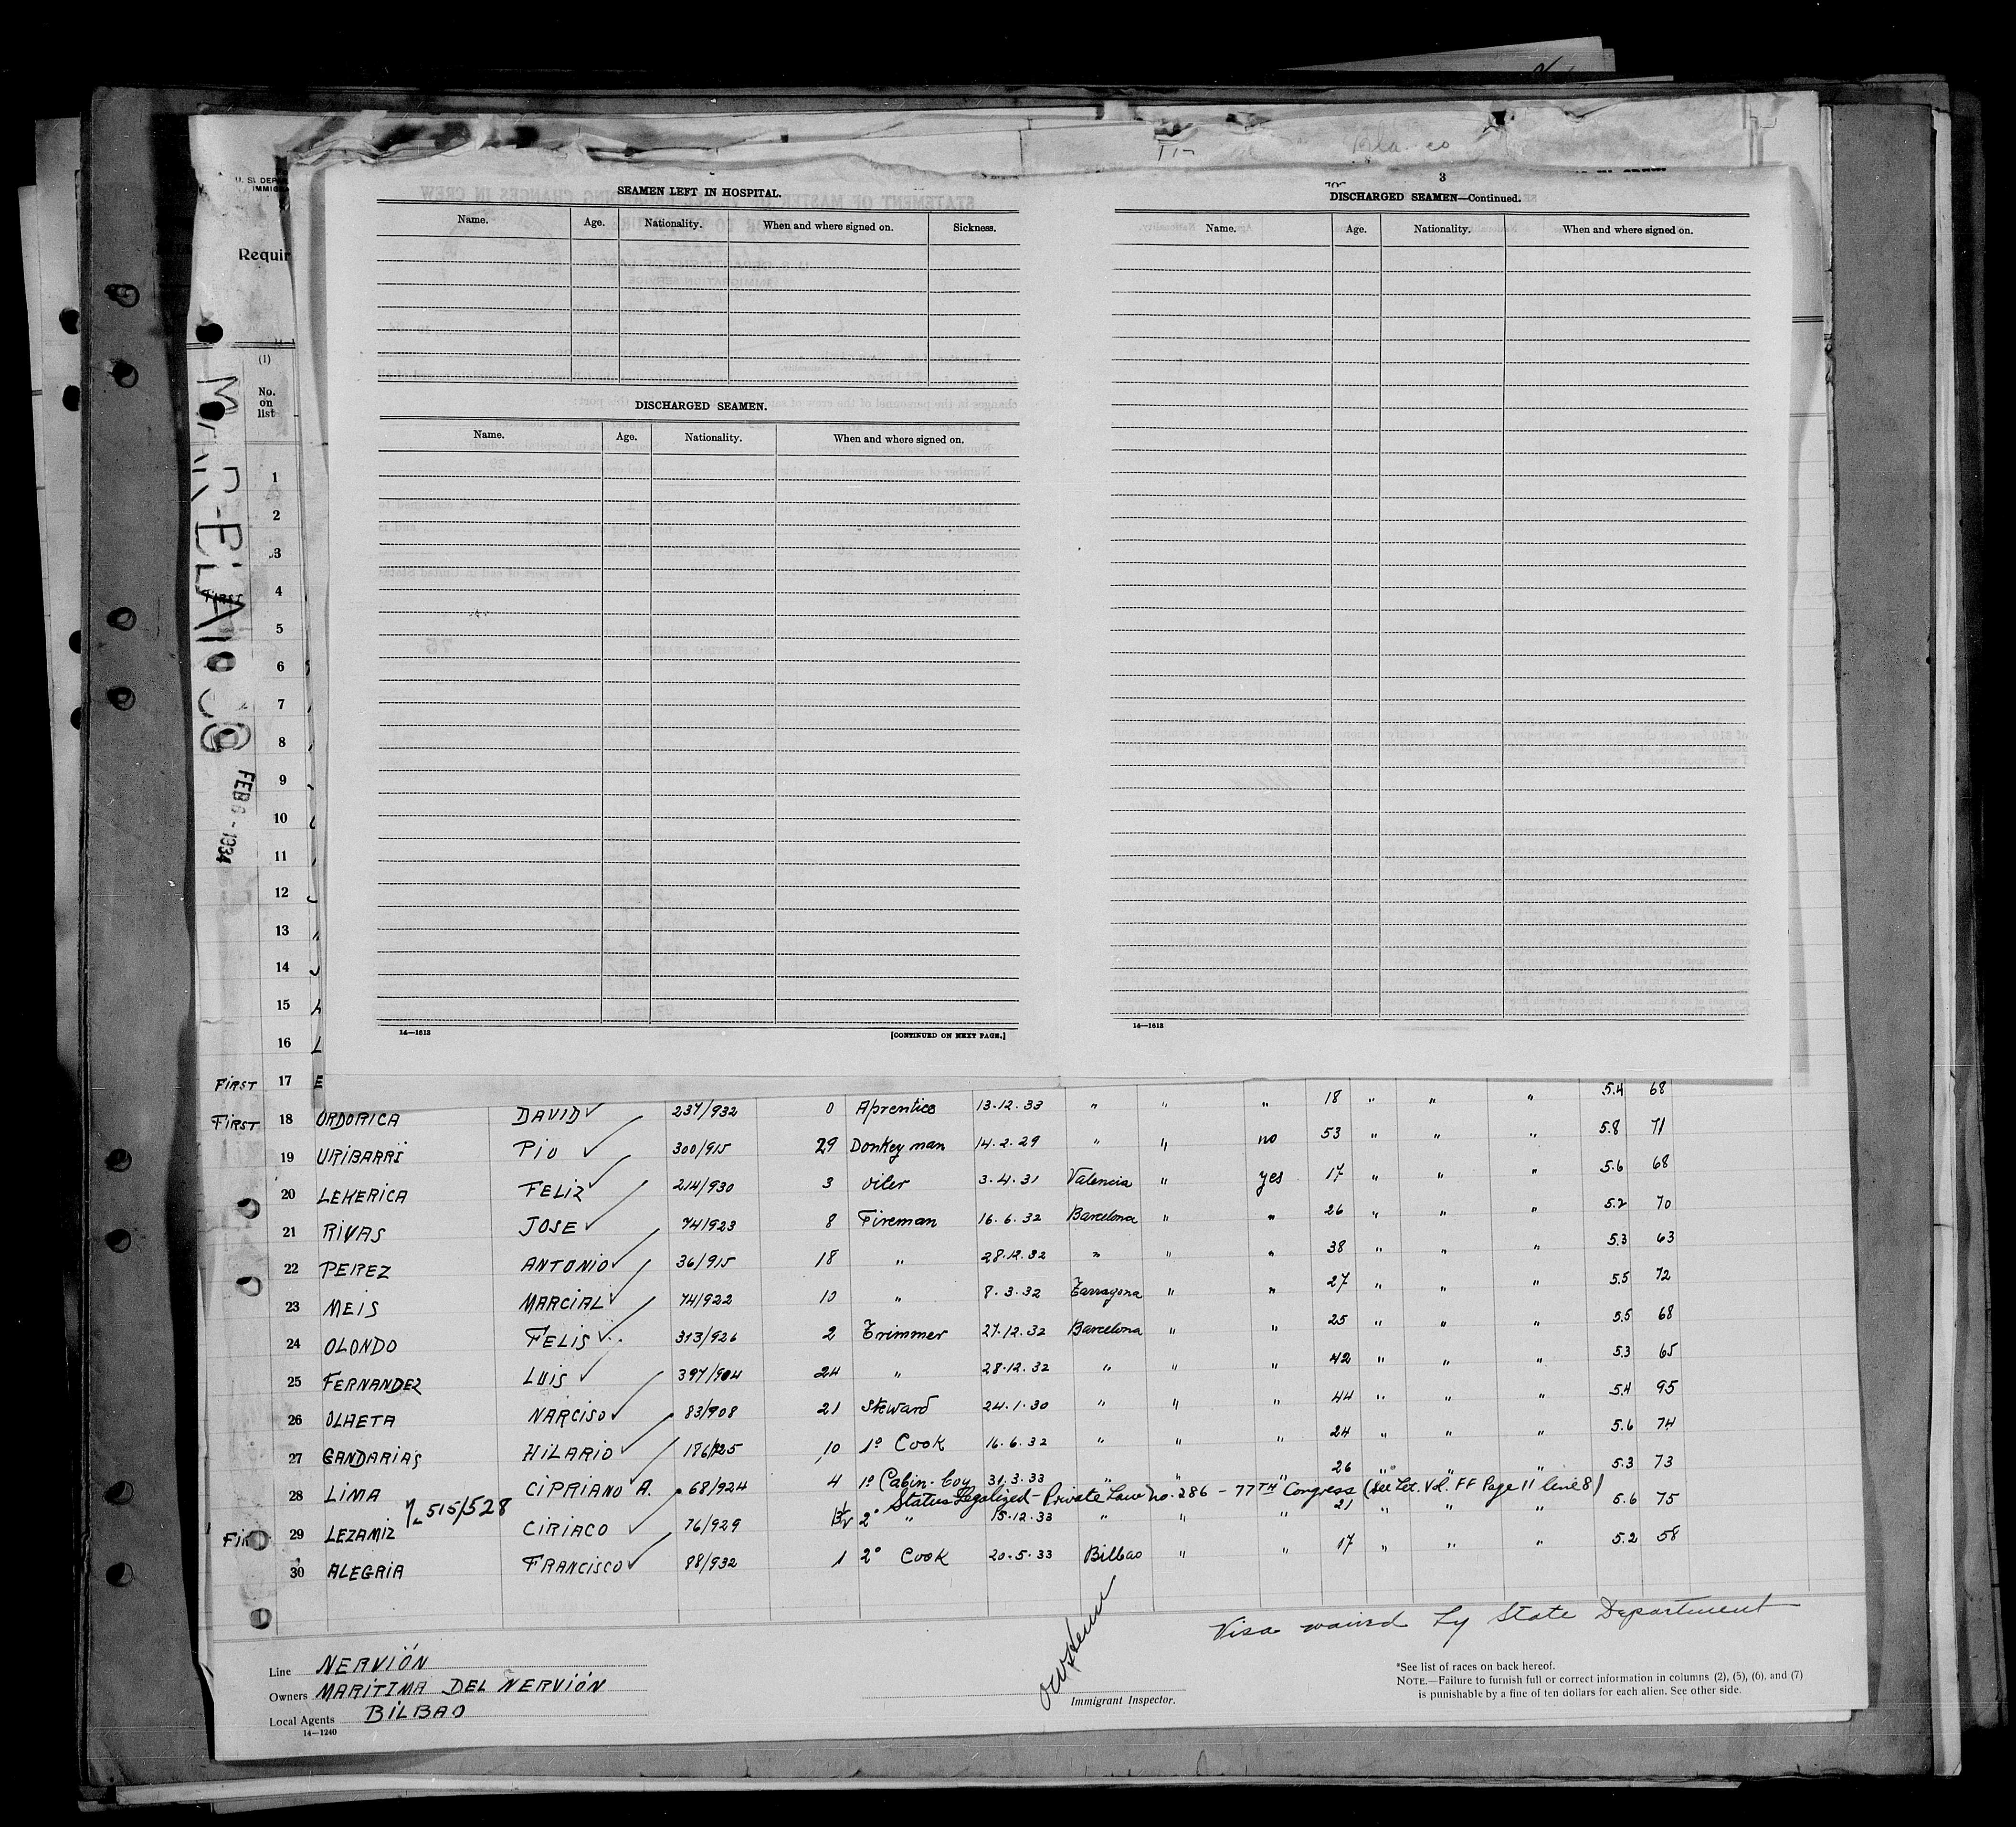 U. S. DEPAR
IMMIG
Requir
(1)
No.
on
list
FEB 6 - 1934
SEAMEN LEFT IN HOSPITAL.
Name. Age. Nationality. When and where signed on. Sickness.
DISCHARGED SEAMEN.
Name. Age. Nationality. When and where signed on.
14—1613
[CONTINUED ON NEXT PAGE.]
3
DISCHARGED SEAMEN—Continued.
Name. Age. Nationality. When and where signed on.
14—1613
1
2
3
FIRST 4
5
6
7
8
9
10
11
12
13
14
15
16
FIRST 17 E 5.4 68
FIRST 18 ORDORICA DAVID 237/932 0 Aprentice 13.12.33 " " " 18 " " " 5.8 71
19 URIBARRI PIO 300/915 29 Donkey man 14.2.29 " " no 53 " " " 5.6 68
20 LEKERICA FELIZ 214/930 3 oiler 3.4.31 Valencia " yes 17 " " " 5.2 70
21 RIVAS JOSE 74/923 8 Fireman 16.6.32 Barcelona " " 26 " " " 5.3 63
22 PEREZ ANTONIO 36/915 18 " 28.12.32 " " " 38 " " " 5.5 72
23 MEIS MARCIAL 74/922 10 " 8.3.32 Tarragona " " 27 " " " 5.5 68
24 OLONDO FELIS 313/926 2 Trimmer 27.12.32 Barcelona " " 25 " " " 5.3 65
25 FERNANDEZ LUIS 397/904 24 " 28.12.32 " " " 42 " " " 5.4 95
26 OLAETA NARCISO 83/908 21 Steward 24.1.30 " " " 44 " " " 5.6 74
27 GANDARIAS HILARIO 186/925 10 1º Cook 16.6.32 " " " 24 " " " 5.3 73
28 LIMA CIPRIANO A. 68/924 4 1º Cabin-boy 31.3.33 " " " 26 " " " 5.6 75
515/528 Status Legalized - Private Law no. 286 - 77TH Congress (See Let. Vol. FF Page 11 line 8)
29 LEZAMIZ CIRIACO 76/929 2º " 15.12.33 " " " 21 " " " 5.2 58
30 ALEGRIA FRANCISCO 88/932 1 2º Cook 20.5.33 Bilbao " " 17 " " "
Visa waived by State Department
Line NERVIÓN
Owners MARITIMA DEL NERVIÓN
Local Agents BILBAO
14—1240
Immigrant Inspector.
*See list of races on back hereof.
NOTE.—Failure to furnish full or correct information in columns (2), (5), (6), and (7)
is punishable by a fine of ten dollars for each alien. See other side.